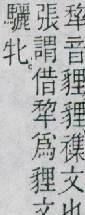 犂音貍貍襍文也
張謂借犂爲貍文
驪牝。